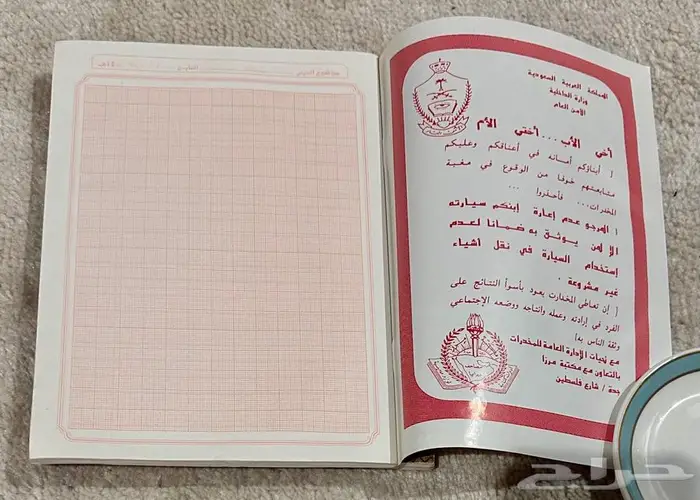 المملكة العربية السعودية
وزارة الداخلية
الأمن العام
أخي الأب ... أختي الأم
( أبناؤكم أمانه في أعناقكم وعليكم
متابعتهم خوفا من الوقوع في مغبة
المخدرات... فأحذروا ...
( المرجو عدم إعارة إبنكم سيارته
الا لمن يوثق به ضمانا لعدم
إستخدام السيارة في نقل أشياء
غير مشروعة .
( إن تعاطي المخدارت يعود بأسوأ النتائج على
الفرد في إرادته وعمله وانتاجه ووضعه الإجتماعي
وثقة الناس به)
مع تحيات الإدارة العامة للمخدرات
بالتعاون مع مكتبة مرزا
جدة / شارع فلسطين
حراج